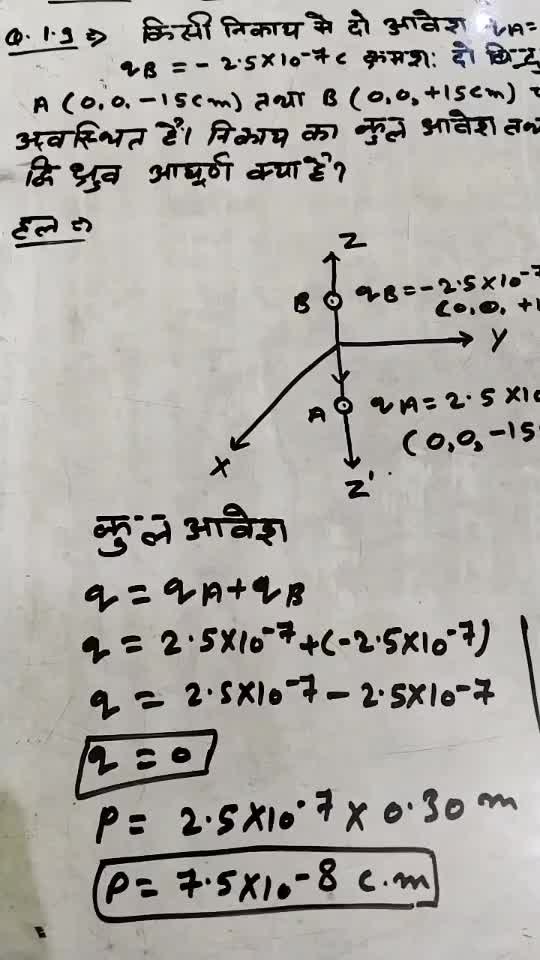 Q.1.9⇒ किसी निकाय में दो आवेश qA=
qB = - 2.5×10-7c क्रमश: दो बिन्दु
A (0,0,-15cm) तथा B (0,0,+15cm)
अवस्थित हैं। निकाय का कुल आवेश तथा
द्वि ध्रुव आघूर्ण क्या है?
हल ⇒
Z
B qB = -2.5×10-7
(0,0,+1
Y
A qA = 2.5×10
(0,0,-15
X
Z'
कुल आवेश
q = qA+qB
q = 2.5×10-7+(-2.5×10-7)
q = 2.5×10-7 - 2.5×10-7
q = 0
P = 2.5×10-7 × 0.30 m
P = 7.5×10-8 c.m